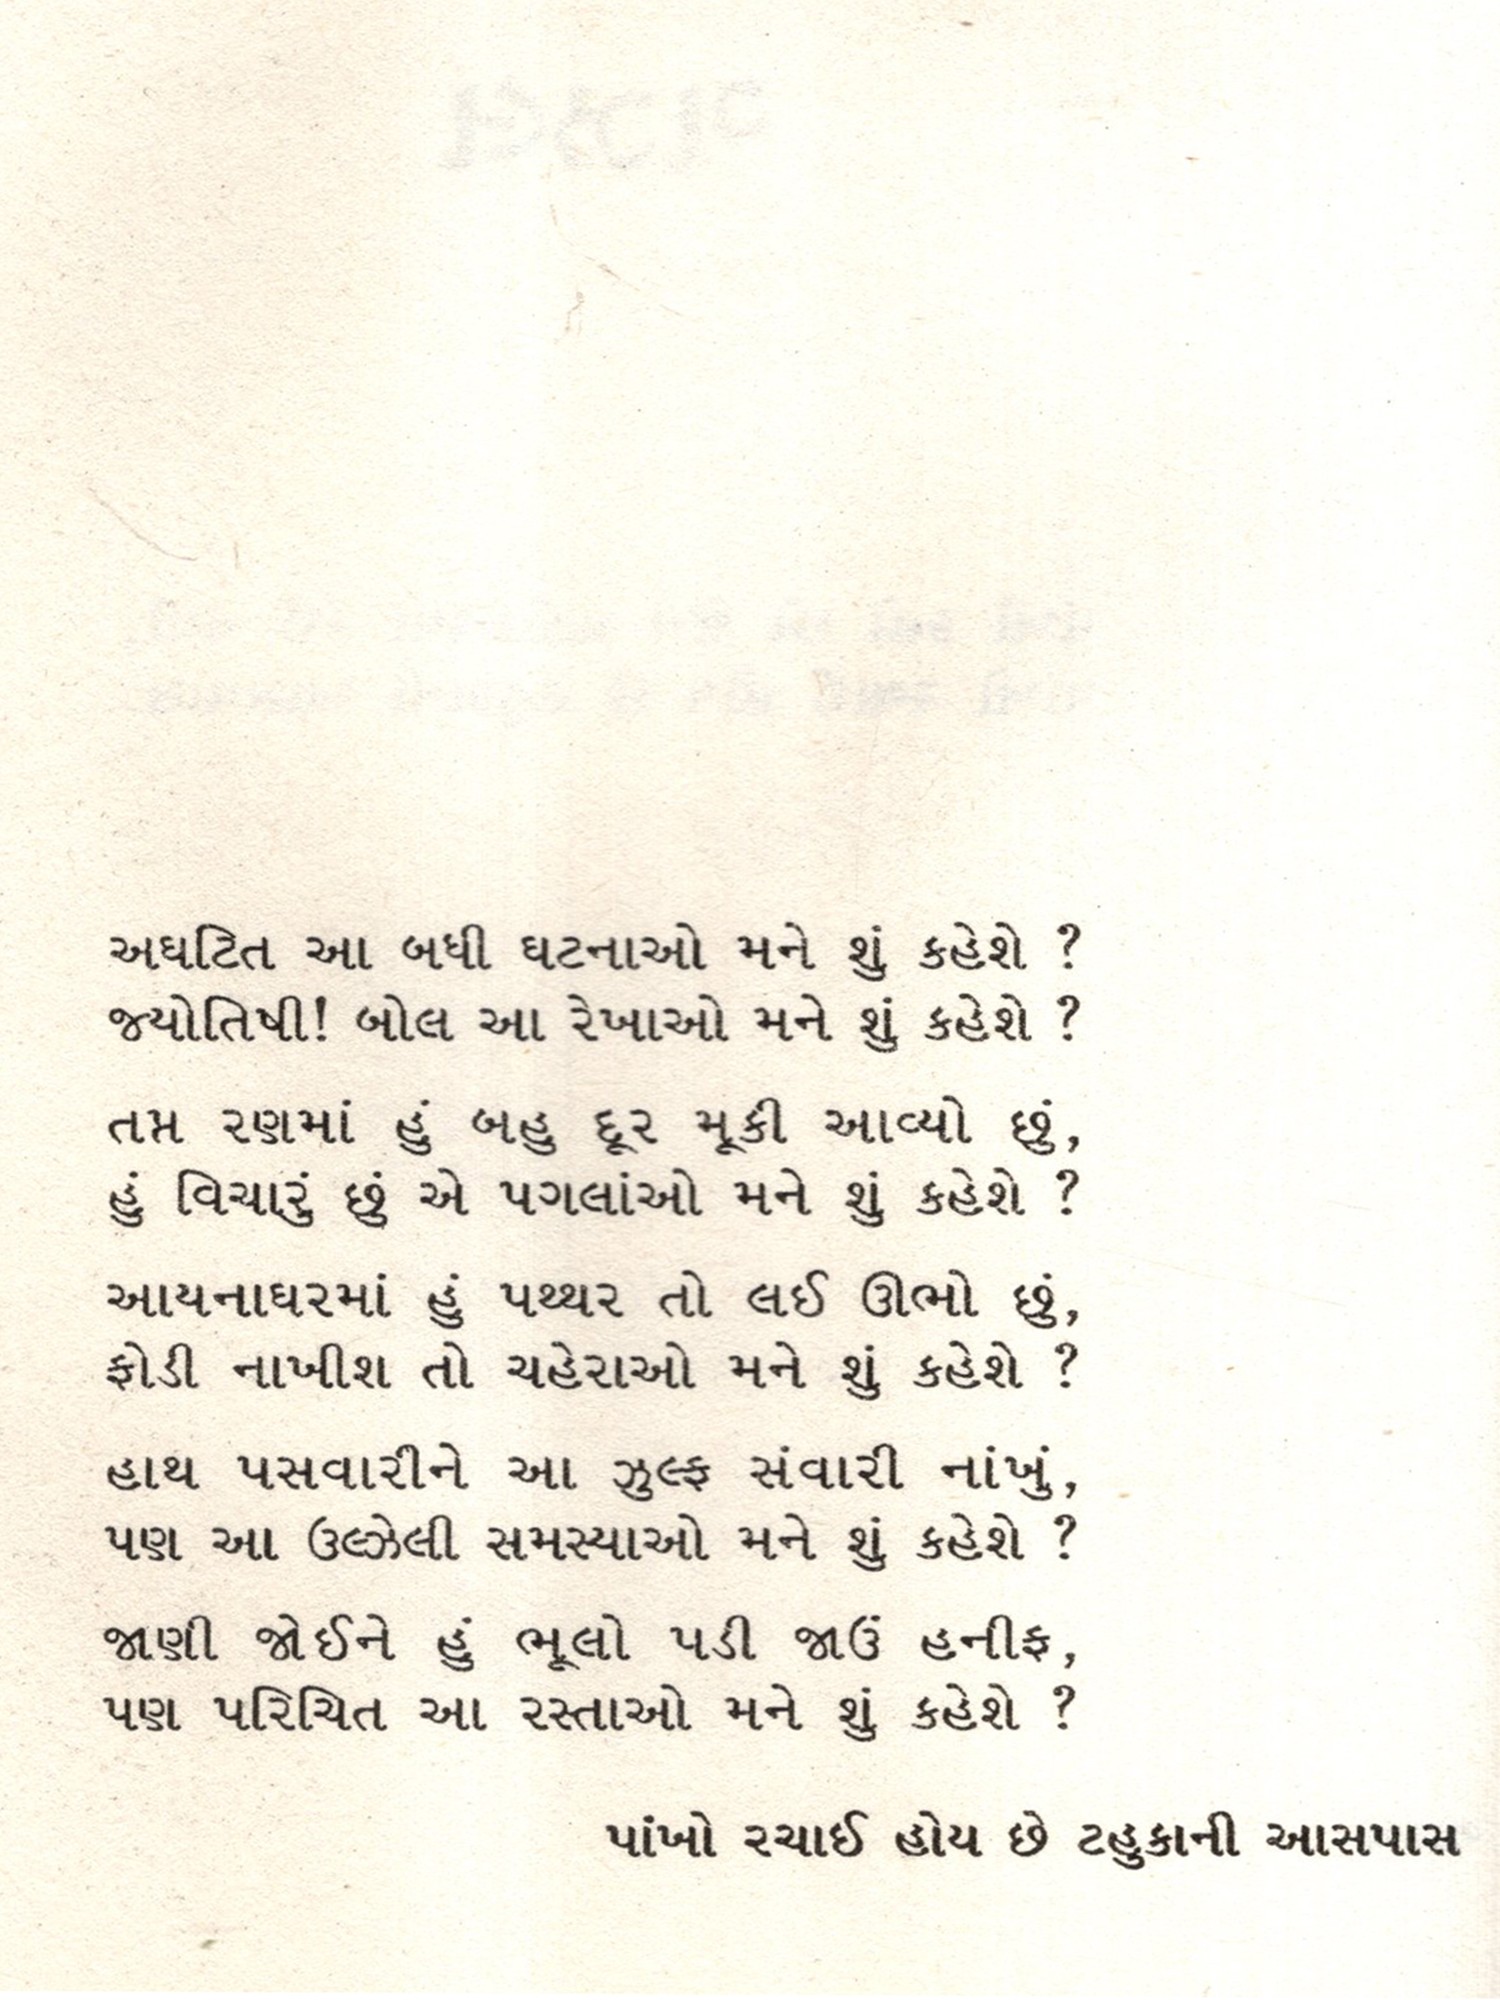 અઘટિત આ બધી ઘટનાઓ મને શું કહેશે ?
જ્યોતિષી! બોલ આ રેખાઓ મને શું કહેશે ?
તપ્ત રણમાં હું બહુ દૂર મૂકી આવ્યો છું,
હું વિચારું છું એ પગલાંઓ મને શું કહેશે ?
આયનાઘરમાં હું પથ્થર તો લઈ ઊભો છું,
ફોડી નાખીશ તો ચહેરાઓ મને શું કહેશે ?
હાથ પસવારીને આ ઝુલ્ફ સંવારી નાંખું,
પણ આ ઉલ્ઝેલી સમસ્યાઓ મને શું કહેશે ?
જાણી જોઈને હું ભૂલો પડી જાઉં હનીફ,
પણ પરિચિત આ રસ્તાઓ મને શું કહેશે ?
પાંખો રચાઈ હોય છે ટહુકાની આસપાસ